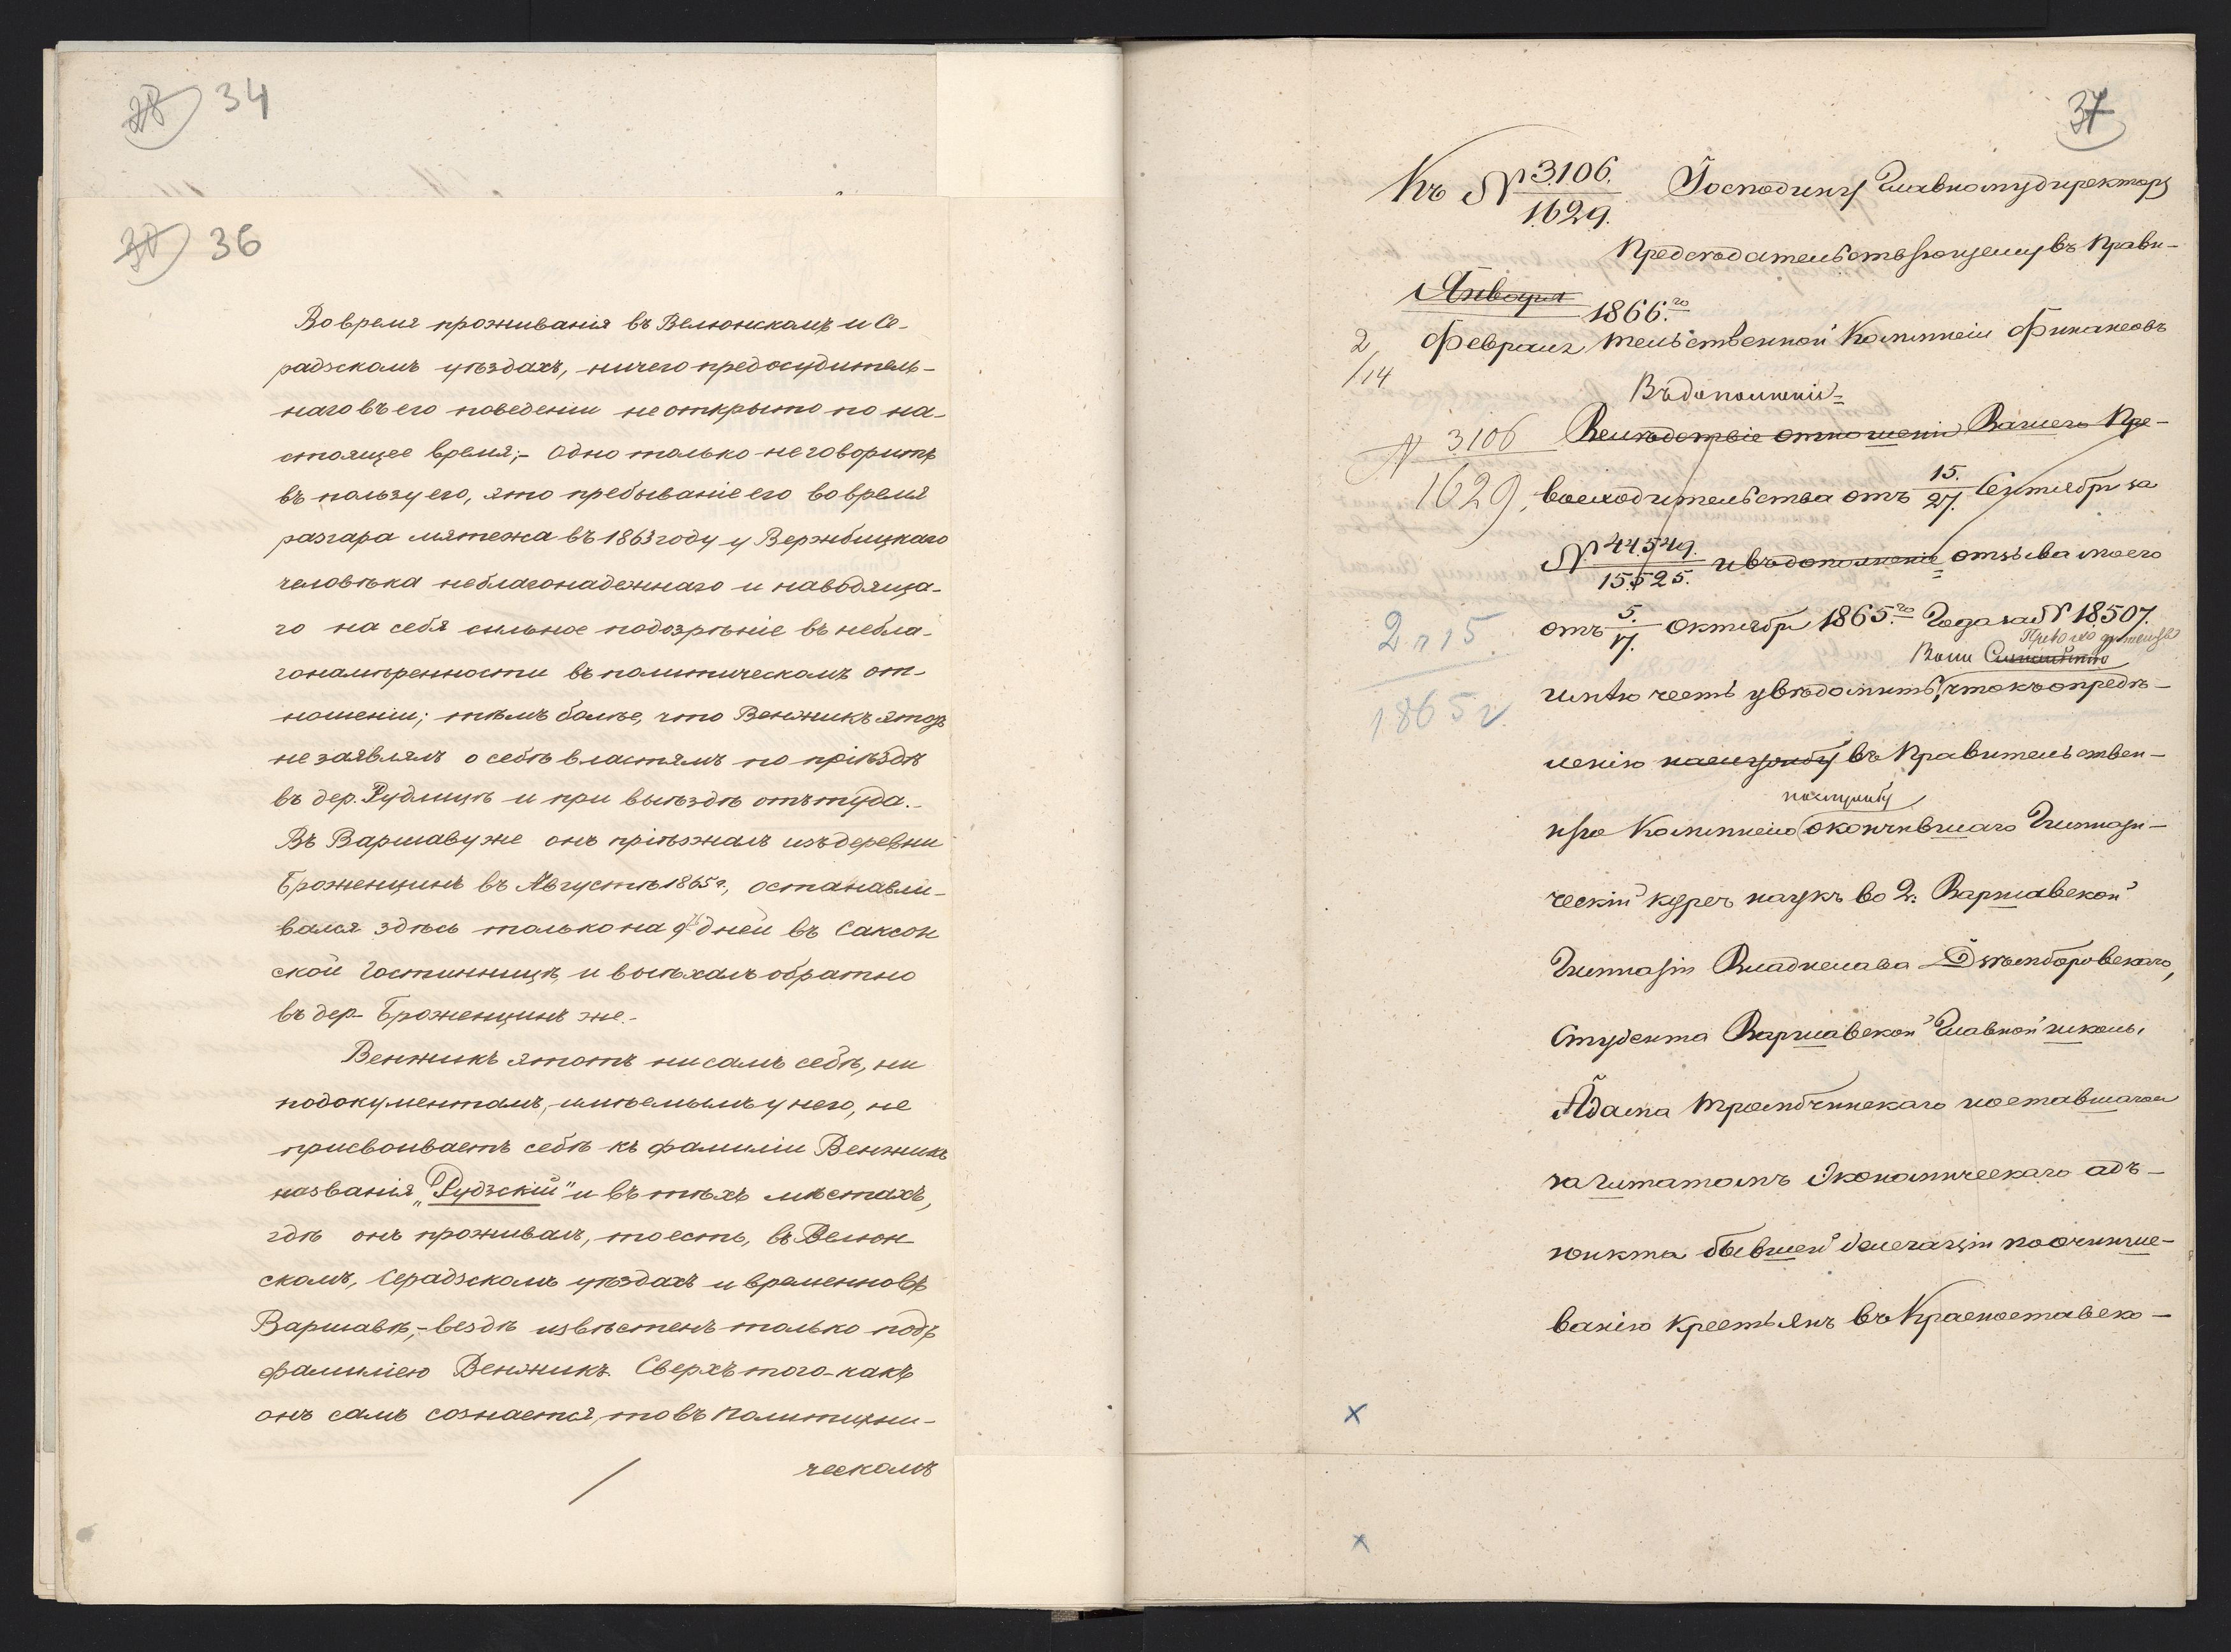 28 34
30 36
Во время проживанія въ Велюнскомъ и Се-
радзскомъ уѣздахъ, ничего предосудитель-
наго въ его поведеніи не открыто по на-
стоящее время;- одно только не говоритъ
въ пользу его, это пребываніе его во время
разгара мятежа въ 1863 году у Вержбицкаго
человѣка неблагонадежнаго и наводяща-
го на себя сильное подозрѣніе въ небла-
гонамѣренности въ политическомъ от-
ношеніи; тѣмъ болѣе, что Венжикъ этотъ
не заявлялъ о себѣ властямъ по пріѣздѣ
въ дер. Рудлицѣ и при выѣздѣ оттуда.-
Въ Варшаву же онъ пріѣзжалъ изъ деревни
Броженщинъ въ Августѣ 1865 г., останавли-
вался здѣсь только на дней въ Саксон
ской Гостинницѣ, и выѣхалъ обратно
въ дер- Броженщинъ же.-
Венжикъ этотъ ни самъ себѣ, ни
по документамъ, имѣемымъ у него, не
присвоиваетъ себѣ къ фамиліи Венжикъ
названія „Рудзскій" и въ тѣхъ мѣстахъ,
гдѣ онъ проживалъ, то есть, въ Велюн
скомъ, Серадзскомъ уѣздахъ и временно въ
Варшавѣ,-вездѣ извѣстенъ только подъ
фамиліею Венжикъ. Сверхъ того-какъ
онъ самъ сознается, то въ
ческомъ
37
Къ № 3106. Господину Главному директору
1629.
Предсѣдательствующему въ Прави-
Января
1866.го
2/14 Февраля тельственной Коммисіи Финансовъ
Въ дополненіе
№ 3106 Вслѣдствіе отношенія Вашего Пре-
1629, восходительства отъ 15./27. Сентября за
№ 44549./15525. и въ дополненіе отзыва моего
2 п 15.
1865 г.
отъ 5./17. Октября 1865.го Года за № 18,507.
Ваше
имѣю честь увѣдомить, что къ опредѣ-
ленію на службу въ Правительствен-
на службу
ную Коммисію окончившаго Гимнази-
ческій курсъ наукъ во 2. Варшавской
Гимназіи Владислава Дзѣмборовскаго,
Студента Варшавской Главной школы
Адама Тромбчинскаго и оставшагося
за штатомъ Экономическаго адъ-
юнкта бывшей делегаціи по очинше-
ванію Крестьянъ въ Красноставско-